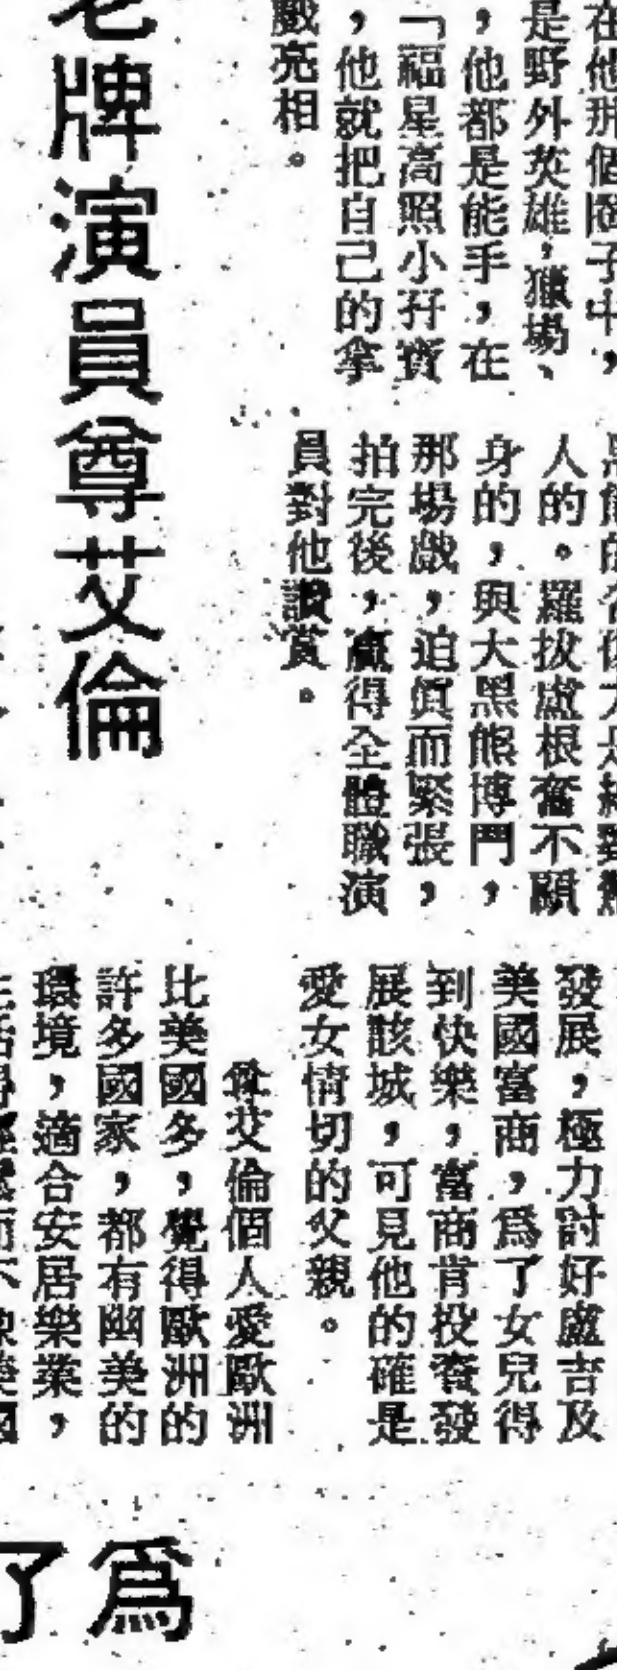 在他那個圈子中，
是野外英雄，獵場、
，他都是能手，在
「福星高照小孖寶
，他就把自己的拿
戲亮相。
人的。羅拔盧根奮不顧
身的，與大黑熊博鬥，
那場戲，迫眞而緊張，
拍完後，贏得全體職演
員對他讚賞。
老牌演員尊艾倫
發展，極力討好盧吉及
美國富商，爲了女兒得
到快樂，富商肯投資發
展該城，可見他的確是
愛女情切的父親。
尊艾倫個人愛歐洲
比美國多，覺得歐洲的
許多國家，都有幽美的
環境，適合安居樂業，
爲了